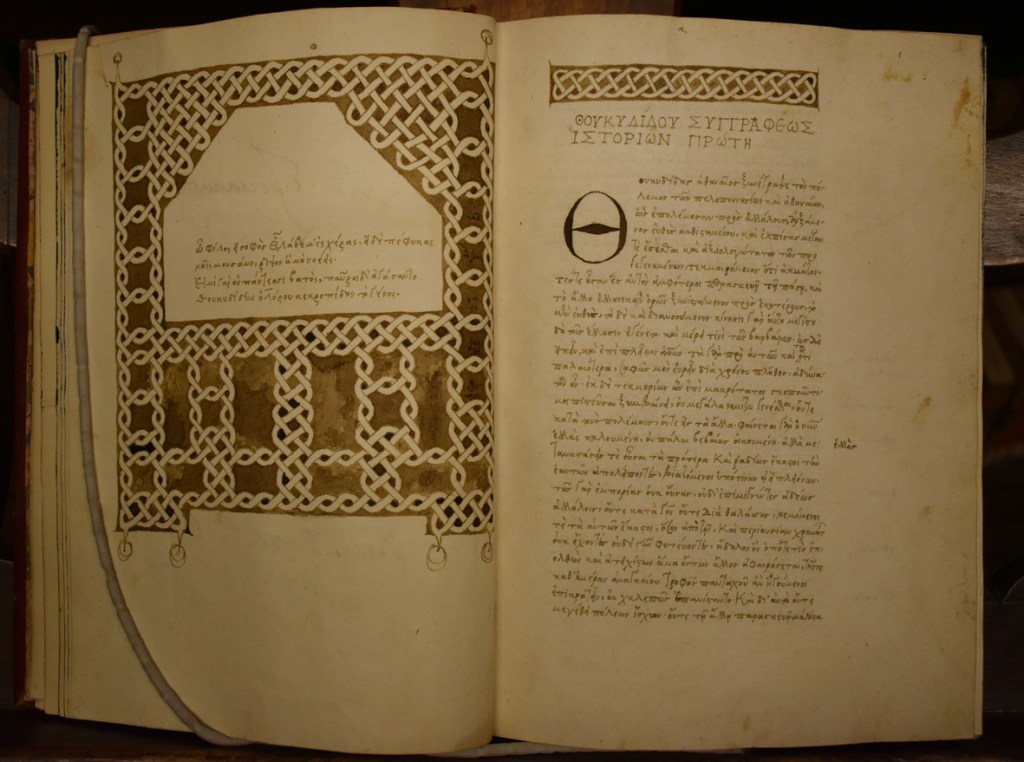 Ὦ φίλος, εἰ σοφὸς εἶ, λάβε μ' ἐς χέρας, εἰ δὲ πέφυκας
νῆις μουσάων, ῥίψον ἃ μὴ νοέεις.
Εἰμὶ γὰρ οὐ πάντεσσι βατὸς, παῦροι δ' ἀγάσαντο
Θουκυδίδην ὀλόρου κεκροπίδην τὸ γένος.
ΘΟΥΚΥΔΙΔΟΥ ΣΥΓΓΡΑΦΕΩΣ
ΙΣΤΟΡΙΩΝ ΠΡΩΤΗ
Θουκυδίδης ἀθηναῖος ξυνέγραψε τὸν πό-
λεμον τῶν πελοποννησίων καὶ ἀθηναίων,
ὡς ἐπολέμησαν πρὸς ἀλλήλους, ἀρξάμε-
νος εὐθὺς καθισταμένου, καὶ ἐλπίσας μέγαν
τε ἔσεσθαι καὶ ἀξιολογώτατον τῶν προ
γεγενημένων, τεκμαιρόμενος ὅτι ἀκμάζον-
τές τε ἦσαν ἐς αὐτὸν ἀμφότεροι παρασκευῇ τῇ πάσῃ, καὶ
τὸ ἄλλο ἑλληνικὸν ὁρῶν ξυνιστάμενον πρὸς ἑκατέρους, τὸ
μὲν εὐθὺς, τὸ δὲ καὶ διανοούμενον. κίνησις γὰρ αὕτη μεγίστη
δὴ τοῖς ἕλλησιν ἐγένετο καὶ μέρει τινὶ τῶν βαρβάρων, ὡς δὲ
εἰπεῖν, καὶ ἐπὶ πλεῖστον ἀνθρώπων. τὰ γὰρ πρὸ αὐτῶν καὶ τὰ ἔτι
παλαιότερα, σαφῶς μὲν εὑρεῖν διὰ χρόνου πλῆθος, ἀδύνα-
τα ἦν. ἐκ δὲ τεκμηρίων ὧν ἐπὶ μακρότατον σκοποῦντί
μοι πιστεῦσαι ξυμβαίνει, οὐ μεγάλα νομίζω γενέσθαι, οὔτε
κατὰ τοὺς πολέμους, οὔτε ἐς τὰ ἄλλα. φαίνεται γὰρ ἡ νῦν
ἑλλὰς καλουμένη, οὐ πάλαι βεβαίως οἰκουμένη, ἀλλὰ με-
ταναστάσεις τε οὖσαι τὰ πρότερα. Καὶ ῥαδίως ἕκαστοι τὴν
ἑαυτῶν ἀπολείποντες, βιαζόμενοι ὑπό τινων ἀεὶ πλειόνων.
τῆς γὰρ ἐμπορίας οὐκ οὔσης, οὐδ' ἐπιμιγνύντες ἀδεῶς
ἀλλήλοις, οὔτε κατὰ γῆν οὔτε διὰ θαλάσσης, νεμόμενοι
τε τὰ αὑτῶν ἕκαστοι, ὅσον ἀποζῆν, Καὶ περιουσίαν χρημάτων
οὐκ ἔχοντες οὐδὲ γῆν φυτεύοντες, ἄδηλον ὂν ὁπότε τις ἐπ-
ελθὼν καὶ ἀτειχίστων ἅμα ὄντων ἄλλος ἀφαιρήσεται, τῆς τε
καθ' ἡμέραν ἀναγκαίου τροφῆς πανταχοῦ ἂν ἡγούμενοι
ἐπικρατεῖν, οὐ χαλεπῶς ἀπανίσταντο. Καὶ δι' αὐτὸ οὔτε
μεγέθει πόλεων ἴσχυον. οὔτε τῇ ἄλλῃ παρασκευῇ. μάλιστα
ἑλλὰς